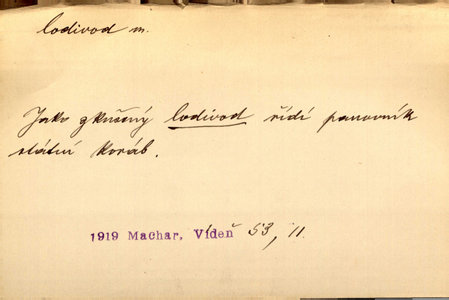 lodivod m.
Jako zkušený lodivod řídí panovník
státní koráb.
1919 Machar, Vídeň 53, 11.